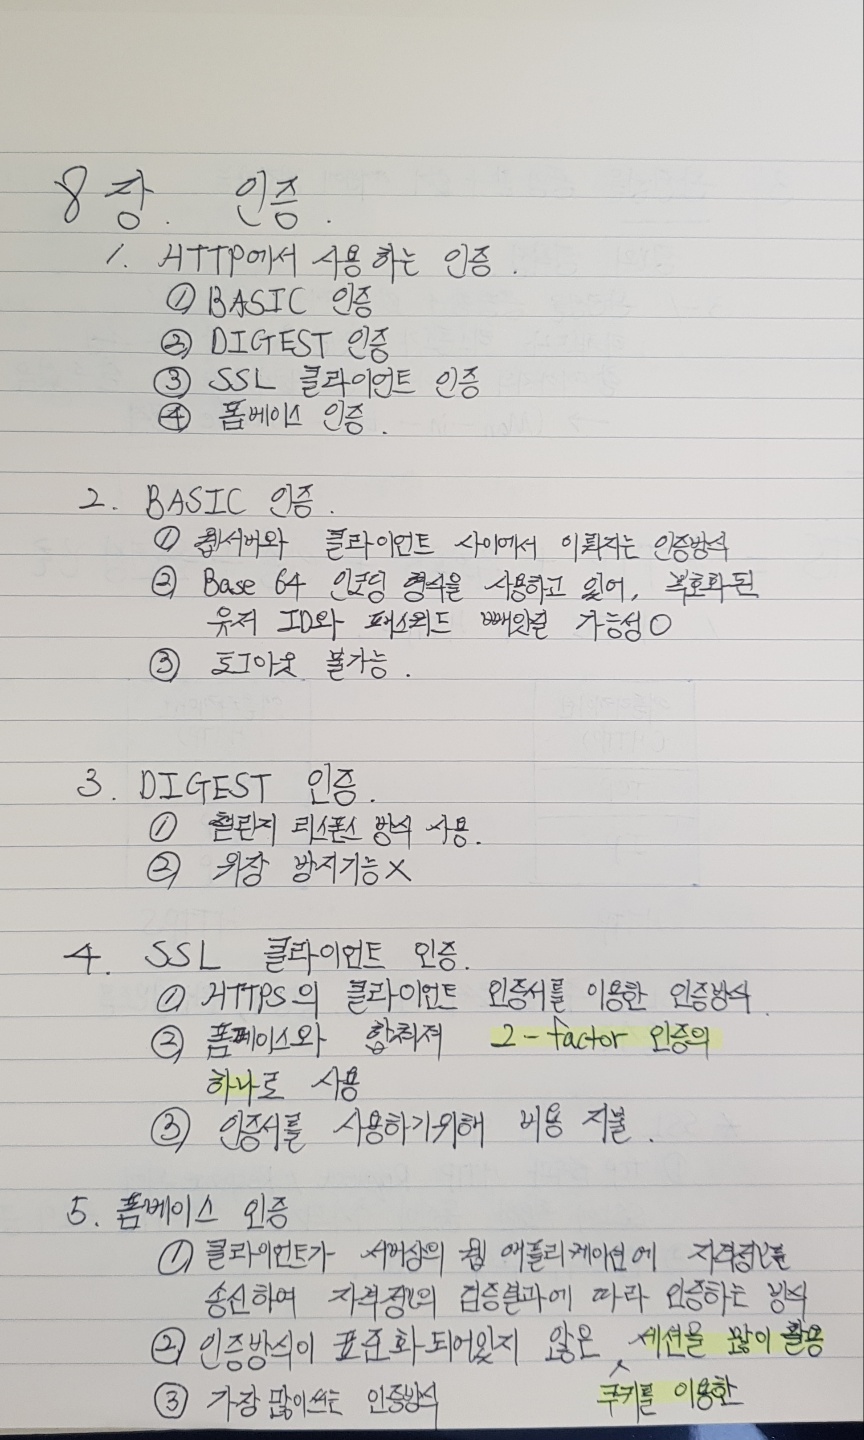 8장. 인증.
1. HTTP에서 사용하는 인증.
① BASIC 인증
② DIGEST 인증
③ SSL 클라이언트 인증
④ 폼베이스 인증.
2. BASIC 인증.
① 웹서버와 클라이언트 사이에서 이뤄지는 인증방식
② Base 64 인코딩 형식을 사용하고 있어, 복호화된
유저 ID와 패스워드 빼앗길 가능성○
③ 로그아웃 불가능.
3. DIGEST 인증.
① 챌린지 리스폰스 방식 사용.
② 위장 방지기능×
4. SSL 클라이언트 인증.
① HTTPS의 클라이언트 인증서를 이용한 인증방식.
② 폼페이스와 합쳐져 2-factor 인증의
하나로 사용
③ 인증서를 사용하기위해 비용 지불.
5. 폼베이스 인증
① 클라이언트가 서버상의 웹 애플리케이션에 자격정보를
송신하여 자격정보의 검증결과에 따라 인증하는 방식
② 인증방식이 표준화되어있지 않은 세션을 많이 활용
③ 가장 많이쓰는 인증방식 쿠키를 이용한